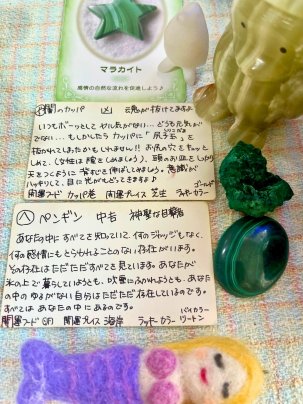 マラカイト
感情の自然な流れを促進しよう♪
闇のカッパ 凶 魂が抜けてますよ
いつもボーっとして ヤル気がない…どうも元気が
でない…もしかしたら カッパに「尻子玉」を
抜かれてしまったのかもしれません!! お尻の穴をキュッ
としめて(女性は膣をしめましょう)、頭のお皿をしっかり
天をつくように 背すじを伸ばしてみましょう。意識が
ハッキリして、目に光がもどってきますよ!
開運フード カッパ巻 開運プレイス 芝生 ラッキーカラー ゴールド
ペンギン 中吉 神聖な目撃者
あなたの中にすべてを知っていて、何のジャッジもなく、
何の感情にもとらわれることのない存在がいます。
その存在はただただすべてを見ています。あなたが
氷の上で暮らしていようとも、吹雪にふかれようとも、あなた
の中のゆるがない自分はただただ存在しているのです。
すべてはあなたの中にあるのです。
開運フード 開運プレイス 海岸 ラッキーカラー バイカラー
ツートン